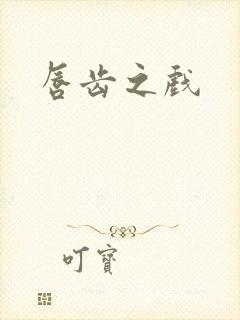 唇齿之戏
叮寶